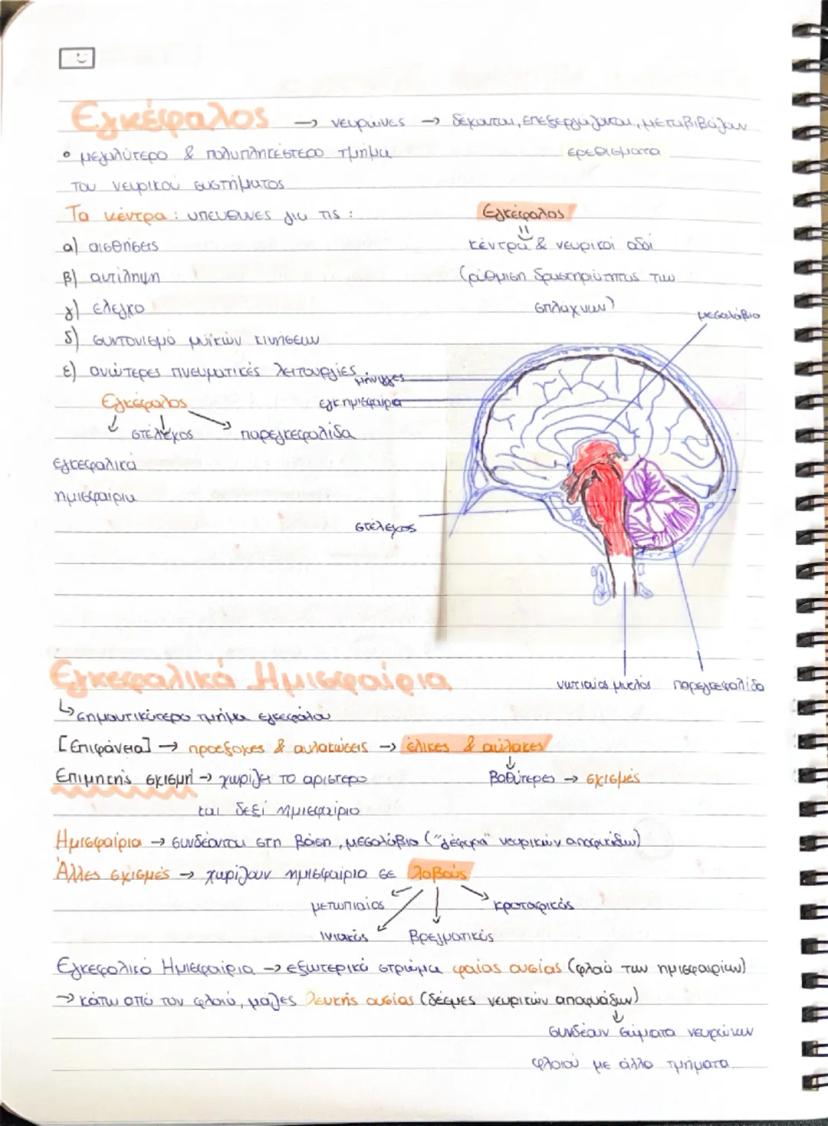 Εγκέφαλος → νευρώνες → δέχονται, επεξεργάζονται, μεταβιβάζουν
ερεθίσματα
• μεγαλύτερο & πολυπλοκέστερο τμήμα
του νευρικού συστήματος
Τα κέντρα: υπεύθυνες για τις:
α) αισθήσεις
β) αντίληψη
γ) έλεγχο
δ) συντονισμό μυϊκών κινήσεων
ε) ανώτερες πνευματικές λειτουργίες
Εγκέφαλος
=
κέντρα & νευρικοί οδοί
(ρύθμιση δραστηριότητας των
σπλάχνων)
Εγκέφαλος
↓ ↓ ↘
στέλεχος παρεγκεφαλίδα
εγκεφαλικά
ημισφαίρια
μεσολόβιο
μήνιγγες
εγκ ημισφαίρια
στέλεχος
νωτιαίος μυελός παρεγκεφαλίδα
Εγκεφαλικά Ημισφαίρια
↳ σημαντικότερο τμήμα εγκεφάλου
[Επιφάνεια] → προεξοχές & αυλακώσεις → έλικες & αύλακες
↓
βαθύτερες → σχισμές
Επιμήκης σχισμή → χωρίζει το αριστερό
και δεξί ημισφαίριο
Ημισφαίρια → συνδέονται στη βάση, μεσολόβιο ("γέφυρα" νευρικών αποφυάδων)
Άλλες σχισμές → χωρίζουν ημισφαίριο σε λοβούς
μετωπιαίος κροταφικός
ινιακός βρεγματικός
Εγκεφαλικά Ημισφαίρια → εξωτερικό στρώμα φαιάς ουσίας (φλοιό των ημισφαιρίων)
→ κάτω από τον φλοιό, μάζες λευκής ουσίας (δέσμες νευρικών αποφυάδων)
↓
συνδέουν σώματα νευρώνων
φλοιού με άλλα τμήματα